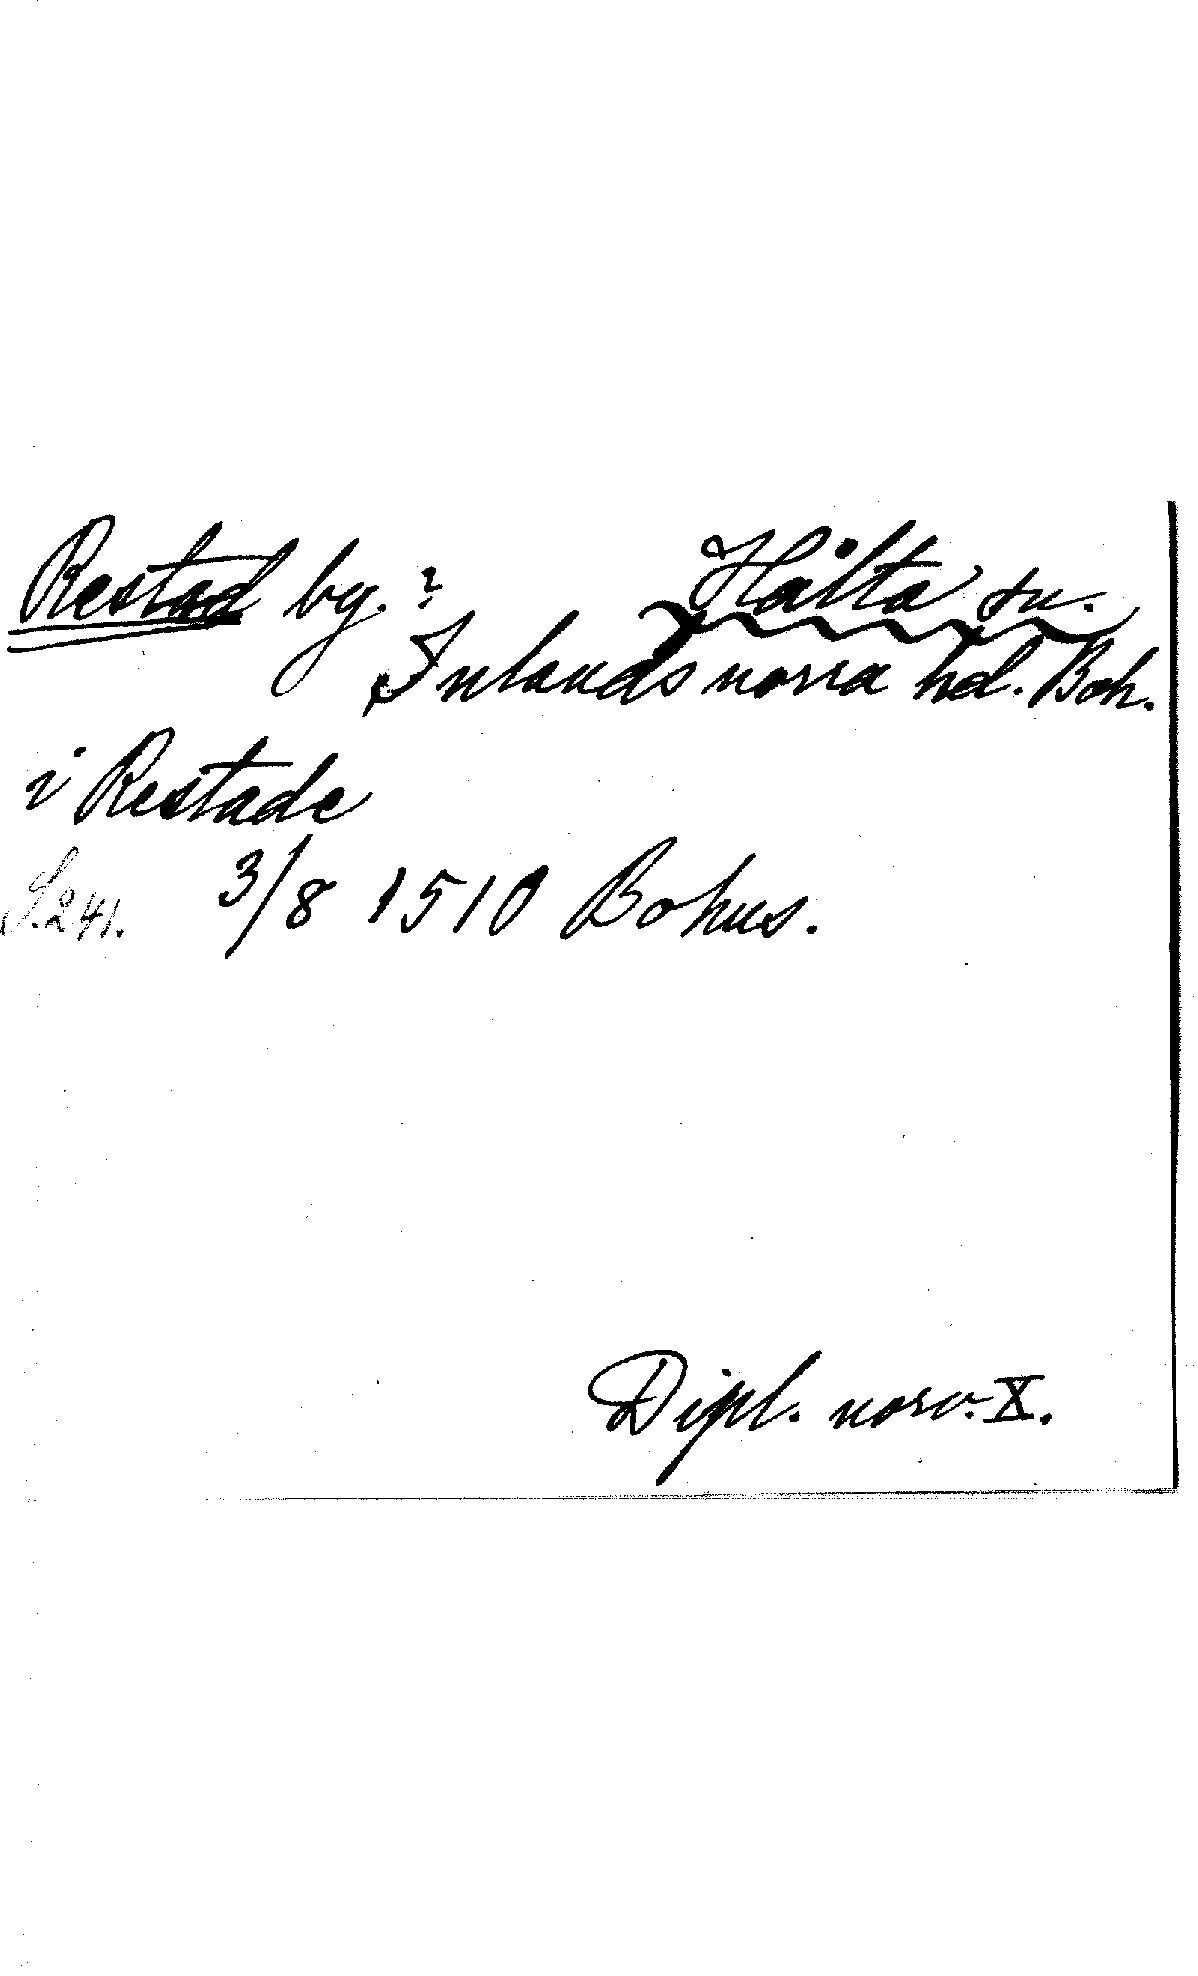 Restad by. ? Hålta sn.
Inlands norra hd. Boh.
i Restade
S. 241. 3/8 1510 Bohus.
Dipl. norv. X.